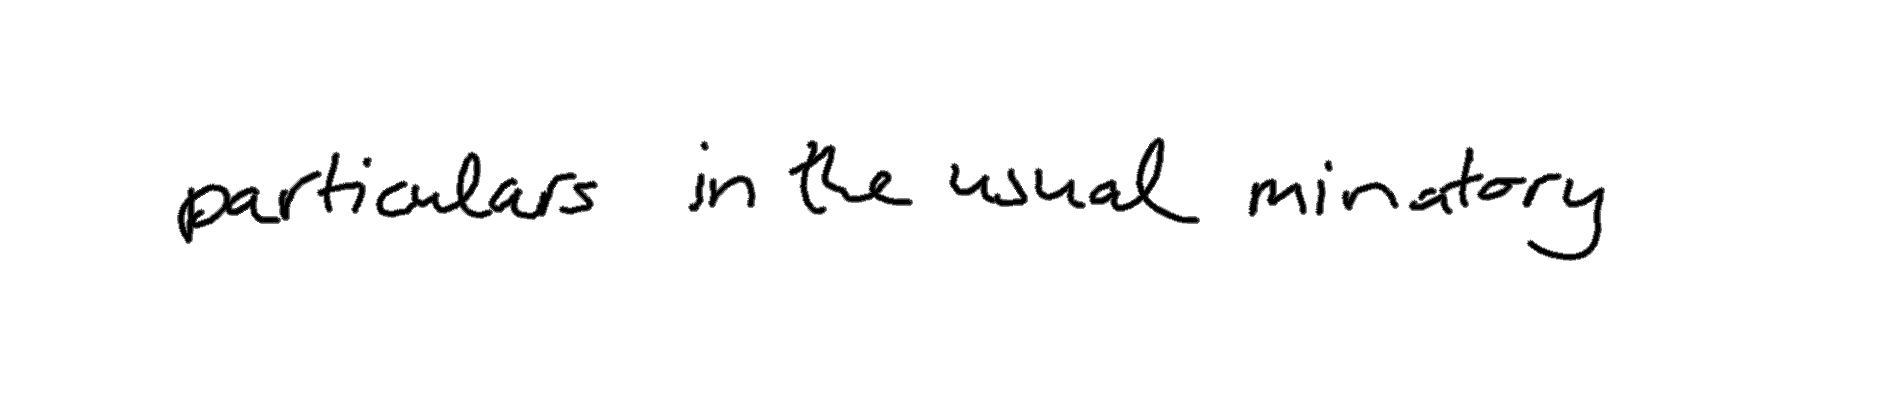 particulars in the usual minatory